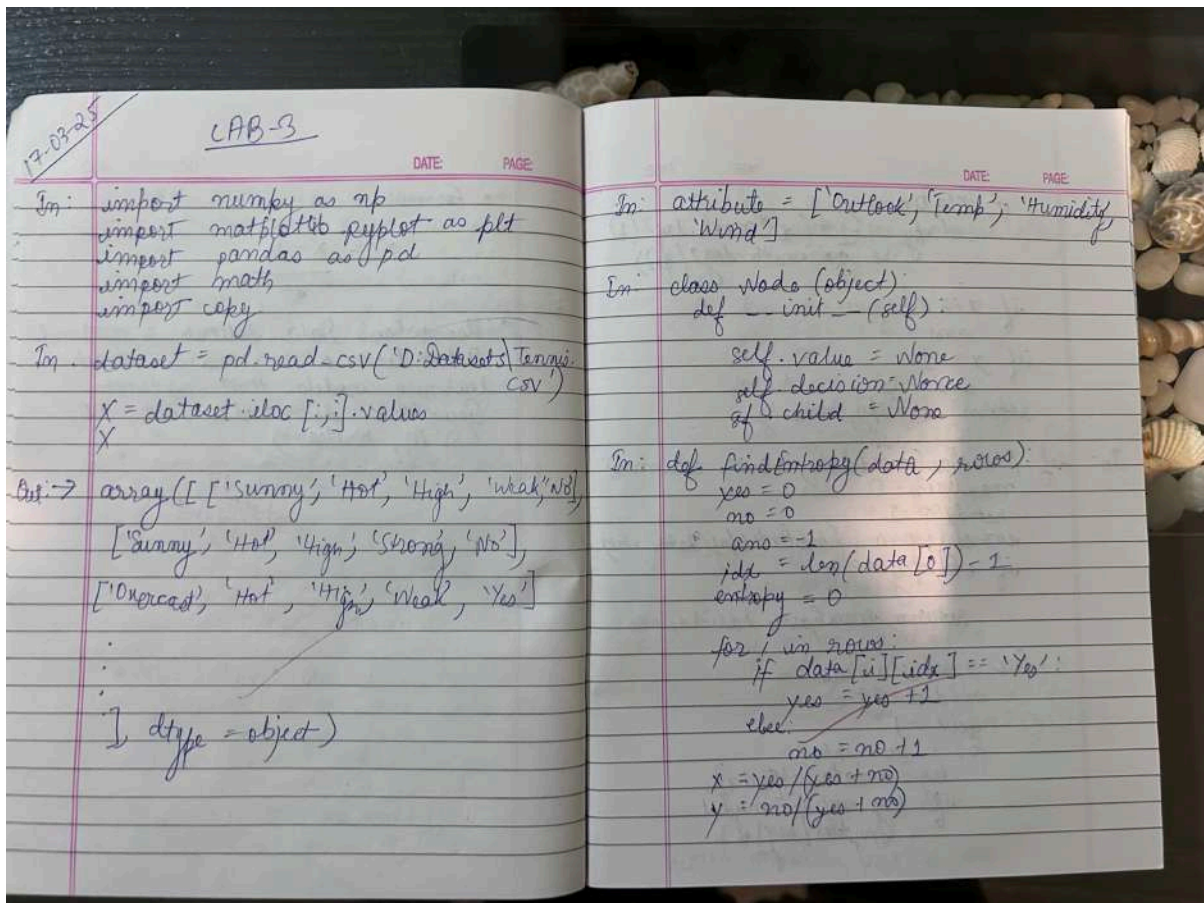 17-03-25
LAB-3
DATE: PAGE:
In: import numpy as np
import matplotlib pyplot as plt
import pandas as pd
import math
import copy
In. dataset = pd.read_csv('D:Datasets\Tennis.
csv')
X = dataset.iloc[:,:].values
X
Out:→ array([['Sunny', 'Hot', 'High', 'Weak', 'No'],
['Sunny', 'Hot', 'High', 'Strong', 'No'],
['Overcast', 'Hot', 'High', 'Weak', 'Yes']
.
.
.
], dtype = object)
DATE: PAGE:
In: attribute = ['Outlook', 'Temp', 'Humidity,
'Wind']
In: class Node (object)
def __init__(self):
self.value = None
self.decision = None
child = None
In: def findEntropy(data, rows):
yes = 0
no = 0
ans = -1
idx = len(data[0]) - 1
entropy = 0
for i in rows:
if data[i][idx] == 'Yes':
yes = yes + 1
else:
no = no + 1
x = yes/(yes + no)
y = no/(yes + no)